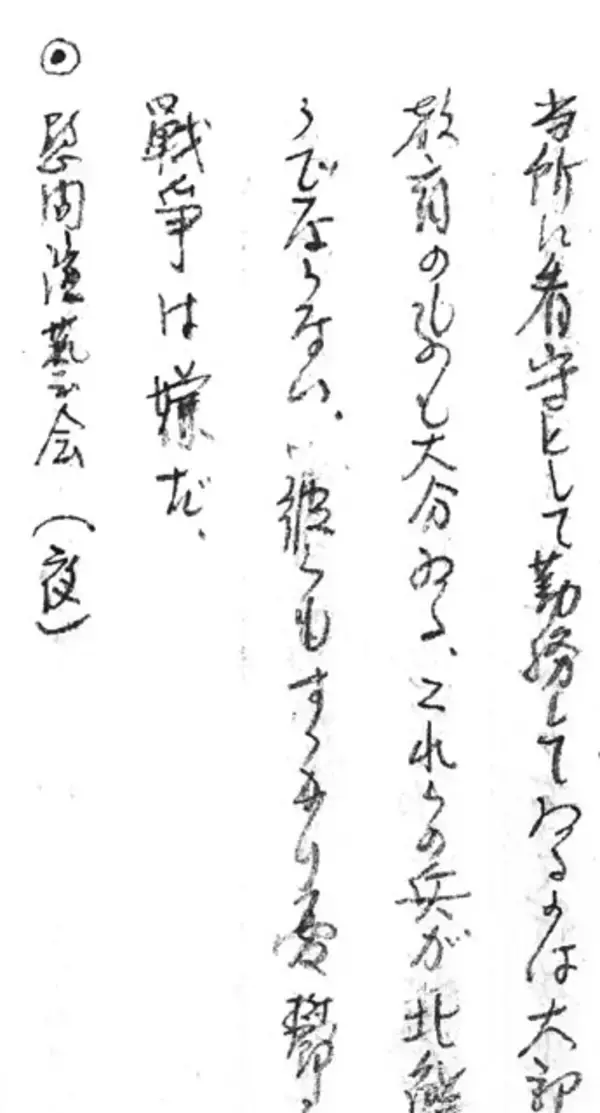 当所に看守として勤務してゐるのは大部
教育のものも大分ゐる、これらの兵が北鮮
うでならない、彼らもすっかり憂鬱
戦争は嫌だ、
◎ 慰問演藝会（夜）